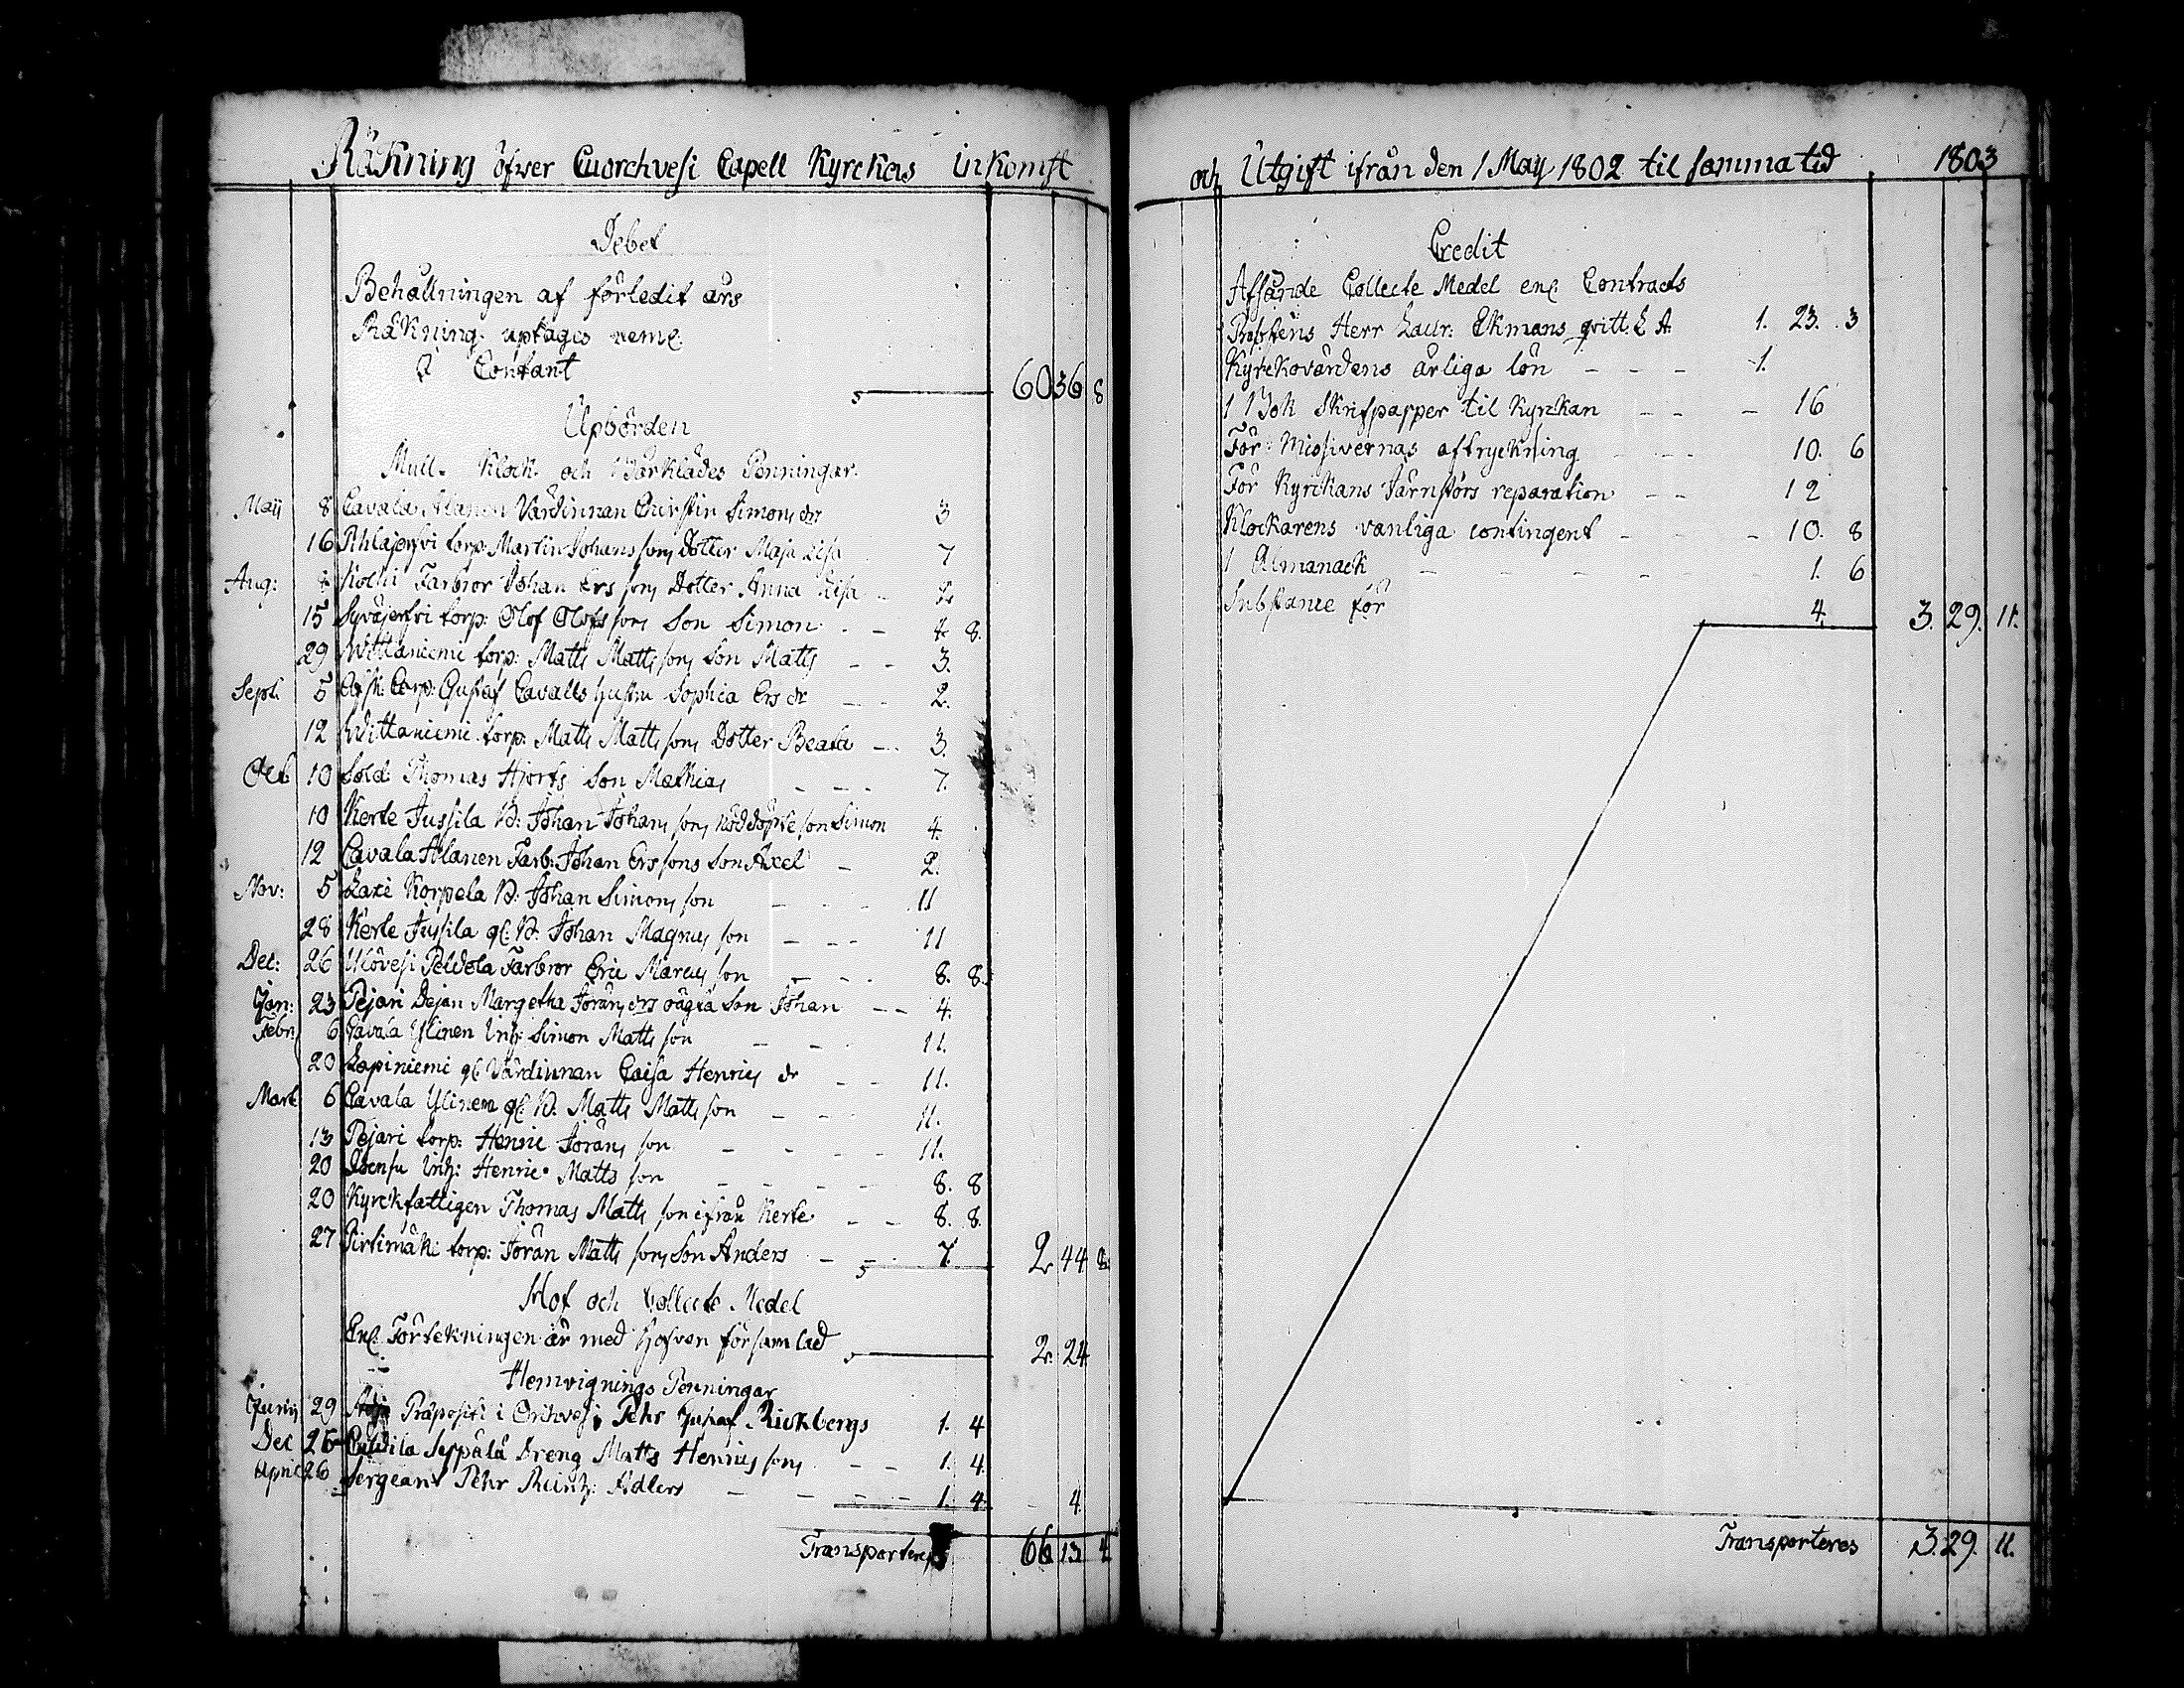 Räkning öfwer Cuorchvesi Capell Kyrckas inkomst
Debet
Behållningen af förledit års
Räkning uptages neml.
Contant 60 36 8
Upbörden
Mull- Klock- och Bårklädes Penningar
Maij 8 Cavala Alanen Värdinnan Chirstin Simons dr 3
16 Pihlajerfvi torp: Martin Johans sons dotter Maja Lisa 7
Aug: Farbror Johan Ers sons Dotter Anna Lisa
15 Syväjerfvi torp: Olof Olofs sons Son Simon 8.
29 Wittaniemi torp: Matts Matts sons Son Matts 3.
Sept: 5 Corp: Gustaf Cavalls hustru Sophia Ers dr 2.
12 Wittaniemi torp: Matts Matts sons Dotter Beata 3.
Oct. 10 Sold: Thomas Hjorts Son Mathias 7.
10 Kerte Jussila B: Johan Johans sons nöddöpte son Simon 4.
12 Cavala Alanen Farb: Johan Ers sons Son Axel 2.
Nov: 5 Laxi Korpela B: Johan Simons son 11
28 Kerte Jussila gl: B. Johan Magnus son 11
Dec: 26 Ulövesi Peldola Farbror Eric Marcus son 8. 8.
Jan: 23 Pejari Dejan Margetha Jörans drs oägta Son Johan 4.
Febr: 6 Cavala Ylinen Inh: Simon Matts son 11.
20 Lapiniemi gl: Värdinnan Caisa Henrics dr 11.
Mart. 6 Cavala Ylinen gl. B. Matts Matts son 11.
13 Pejari torp: Henric Jörans son 11.
20 Inh: Henric Matts son 8. 8
20 Kyrckfattigen Thomas Matts son ifrån Kerte 8. 8.
27 Pirtimäki torp: Jöran Matts sons Son Anders 7. 2 44 8
Hof och Collecte Medel
Enl. Förtekningen är med Hofven församlad 2. 24
Hemvignings Penningar
Junij 29 Præpositi i Orihvesi Pehr Gustaf Rickbergs 1. 4
Dec 26 Seppälä Dreng Matts Henrics sons 1. 4.
April 26 Sergeant Pehr Reinh: Adlers 1. 4. 4.
Transporteres 66 13 4
och Utgift ifrån den 1 May 1802 til samma tid 1803
Credit
Afsände Collecte Medel enl. Contracts
Prostens Herr Laur: Ekmans qvitt. L A. 1. 23. 3
Kyrckovärdens årliga lön 1.
1 Bok Skrifpapper til Kyrckan 16
För Missivernas aftryckning 10. 6
För Kyrckans Järnstörs reparation 12
Klockarens vanliga contingent 10. 8
1 Almanack 1. 6
för 4. 3. 29. 11.
Transporteres 3. 29. 11.